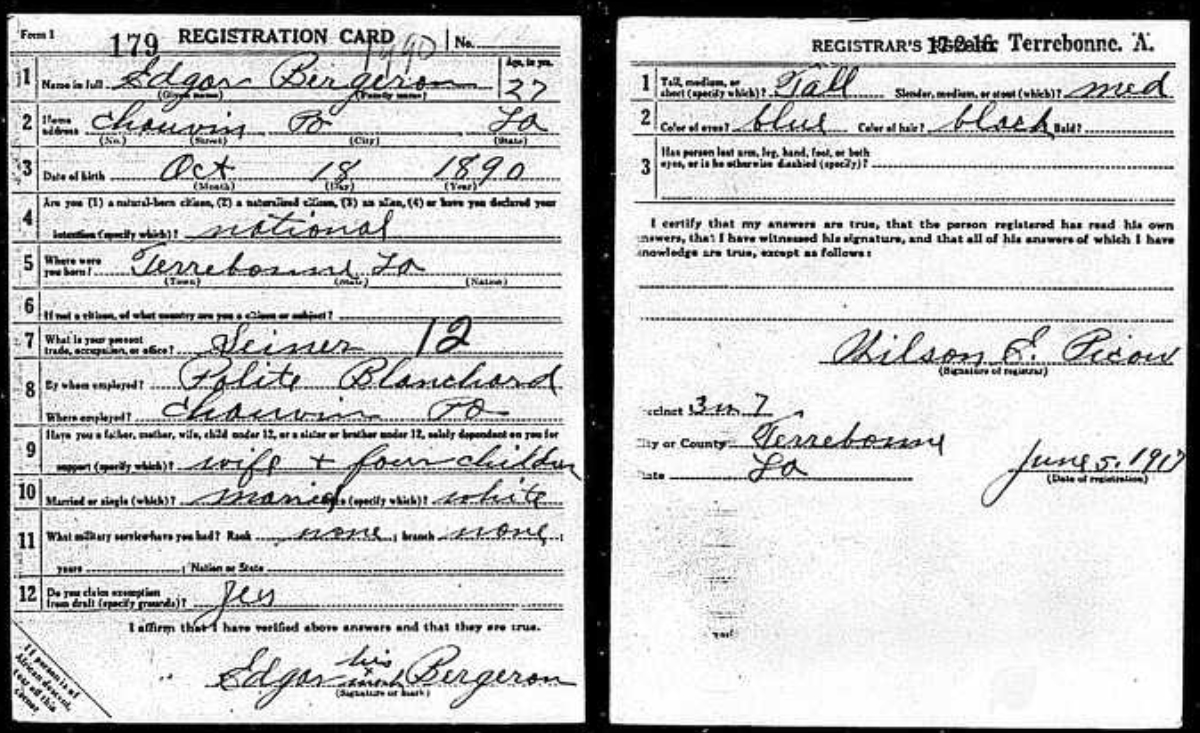 Form 1
179 REGISTRATION CARD 1890 No.
1 Name in full Edgar Bergeron 27
(Given name) (Family name) Age, in yrs.
2 Home address Chauvin Po La
(No.) (Street) (City) (State)
3 Date of birth Oct 18 1890
(Month) (Day) (Year)
4 Are you (1) a natural-born citizen, (2) a naturalized citizen, (3) an alien, (4) or have you declared your
intention (specify which)? national
5 Where were you born? Terrebonne La
(Town) (State) (Nation)
6 If not a citizen, of what country are you a citizen or subject?
7 What is your present trade, occupation, or office? Seiner 12
8 By whom employed? Polite Blanchard
Where employed? Chauvin Po
9 Have you a father, mother, wife, child under 12, or a sister or brother under 12, solely dependent on you for
support (specify which)? wife + four children
10 Married or single (which)? married (specify which)? white
11 What military service have you had? Rank none ; branch none ;
years ; Nation or State
12 Do you claim exemption from draft (specify grounds)? Yes
I affirm that I have verified above answers and that they are true.
his
Edgar x Bergeron
mark
(Signature or mark)
If person is of
African descent,
tear off this
corner
REGISTRAR'S Terrebonne. A.
1 Tall, medium, or short (specify which)? Tall Slender, medium, or stout (which)? med
2 Color of eyes? blue Color of hair? black Bald?
3 Has person lost arm, leg, hand, foot, or both
eyes, or is he otherwise disabled (specify)?
I certify that my answers are true, that the person registered has read his own
nswers, that I have witnessed his signature, and that all of his answers of which I have
nowledge are true, except as follows:
Wilson E. Picou
(Signature of registrar)
ecinct 3 7
ity or County Terrebonne
ate La June 5, 1917
(Date of registration)